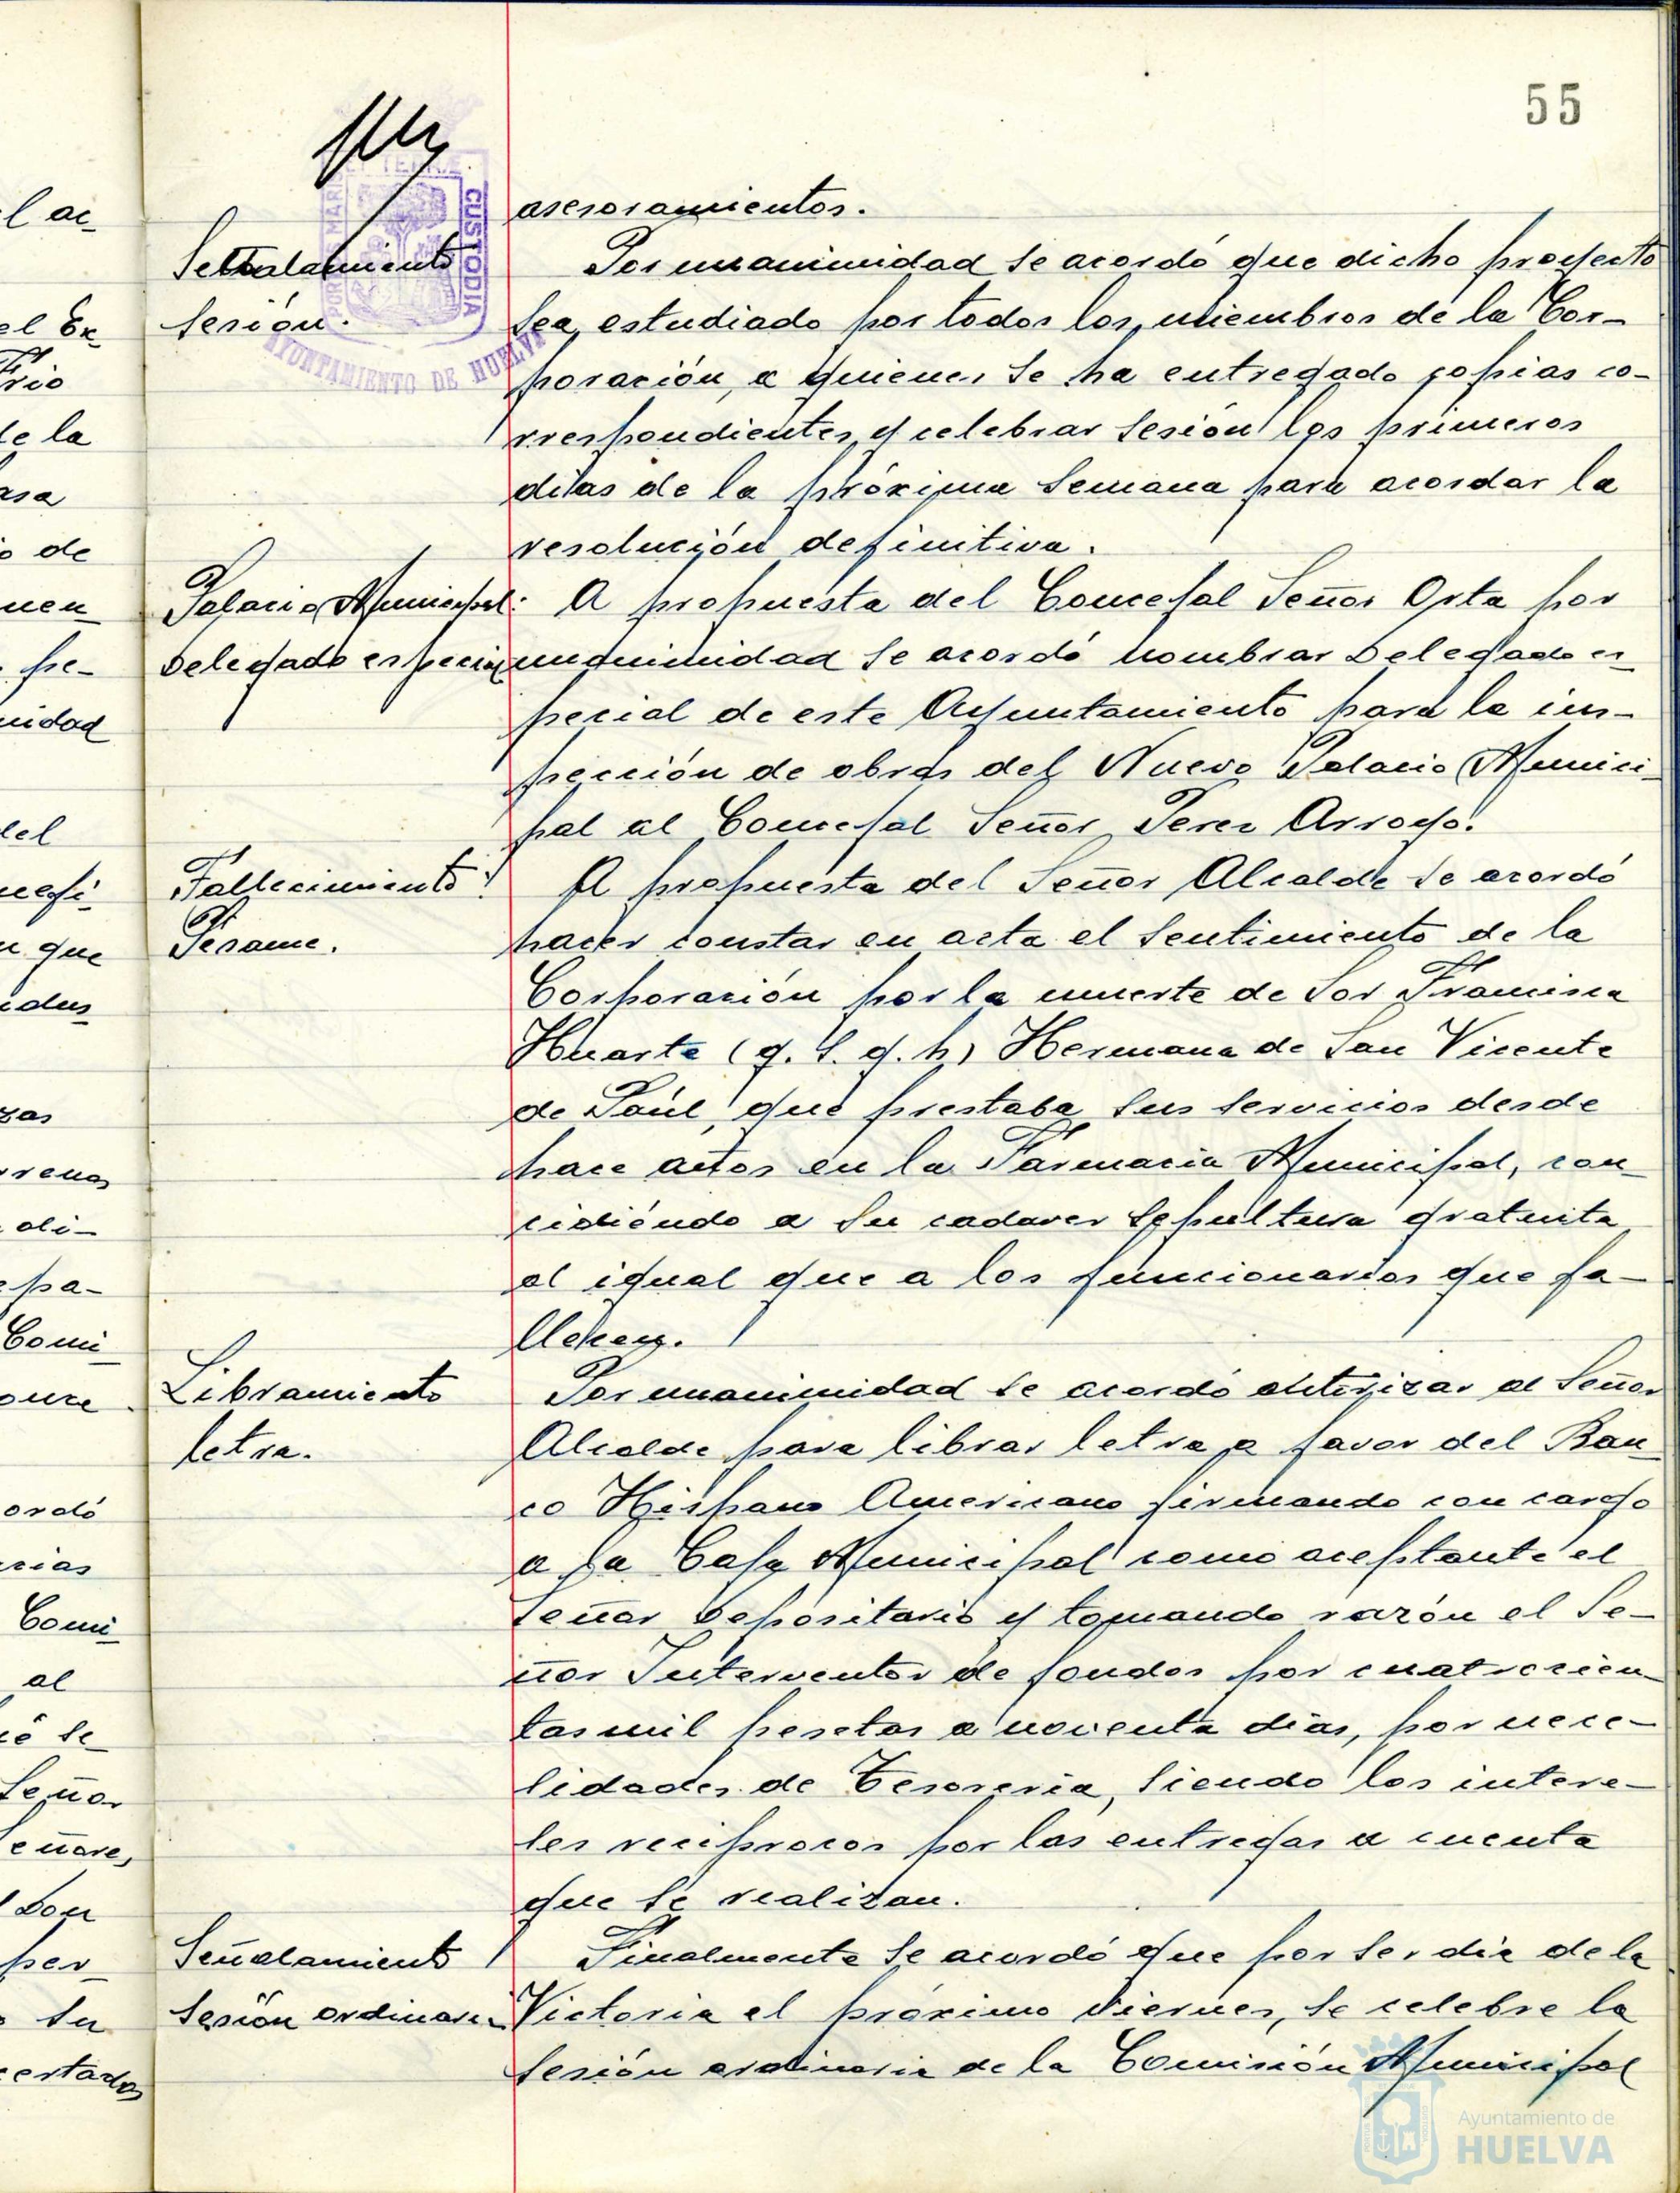 55
asesoramientos.
Señalamiento
sesión.
Por unanimidad se acordó que dicho proyecto
sea estudiado por todos los miembros de la Cor-
poración, a quienes se ha entregado copias co-
rrespondientes, y celebrar sesión los primeros
dias de la próxima semana para acordar la
resolución definitiva.
Palacio Municipal.
Delegado especial
A propuesta del Concejal Señor Orta por
unanimidad se acordó nombrar Delegado es-
pecial de este Ayuntamiento para la ins-
pección de obras del Nuevo Palacio Munici-
pal al Concejal Señor Perez Arroyo.
Fallecimiento
Pesame.
A propuesta del Señor Alcalde se acordó
hacer constar en acta el sentimiento de la
Corporación por la muerte de Sor Francisca
Huarte (q. s. g. h) Hermana de San Vicente
de Paúl, que prestaba sus servicios desde
hace años en la Farmacia Municipal, con-
cidiéndo a su cadaver sepultura gratuita
al igual que a los funcionarios que fa-
llecen.
Libramiento
letra.
Por unanimidad se acordó autorizar al Señor
Alcalde para librar letra a favor del Ban-
co Hispano Americano firmando con cargo
a la Caja Municipal como aceptante el
Señor Depositario y tomando razón el Se-
ñor Interventor de fondos por cuatrocien-
tas mil pesetas a noventa dias, por nece-
sidades de Tesoreria, siendo los intere-
ses reciprocos por las entregas a cuenta
que se realizan.
Señalamiento
sesión ordinaria
Finalmente se acordó que por ser dia de la
Victoria el próximo viernes, se celebre la
sesión ordinaria de la Comisión Municipal
CUSTODIA
AYUNTAMIENTO DE HUELVA
Ayuntamiento de
HUELVA